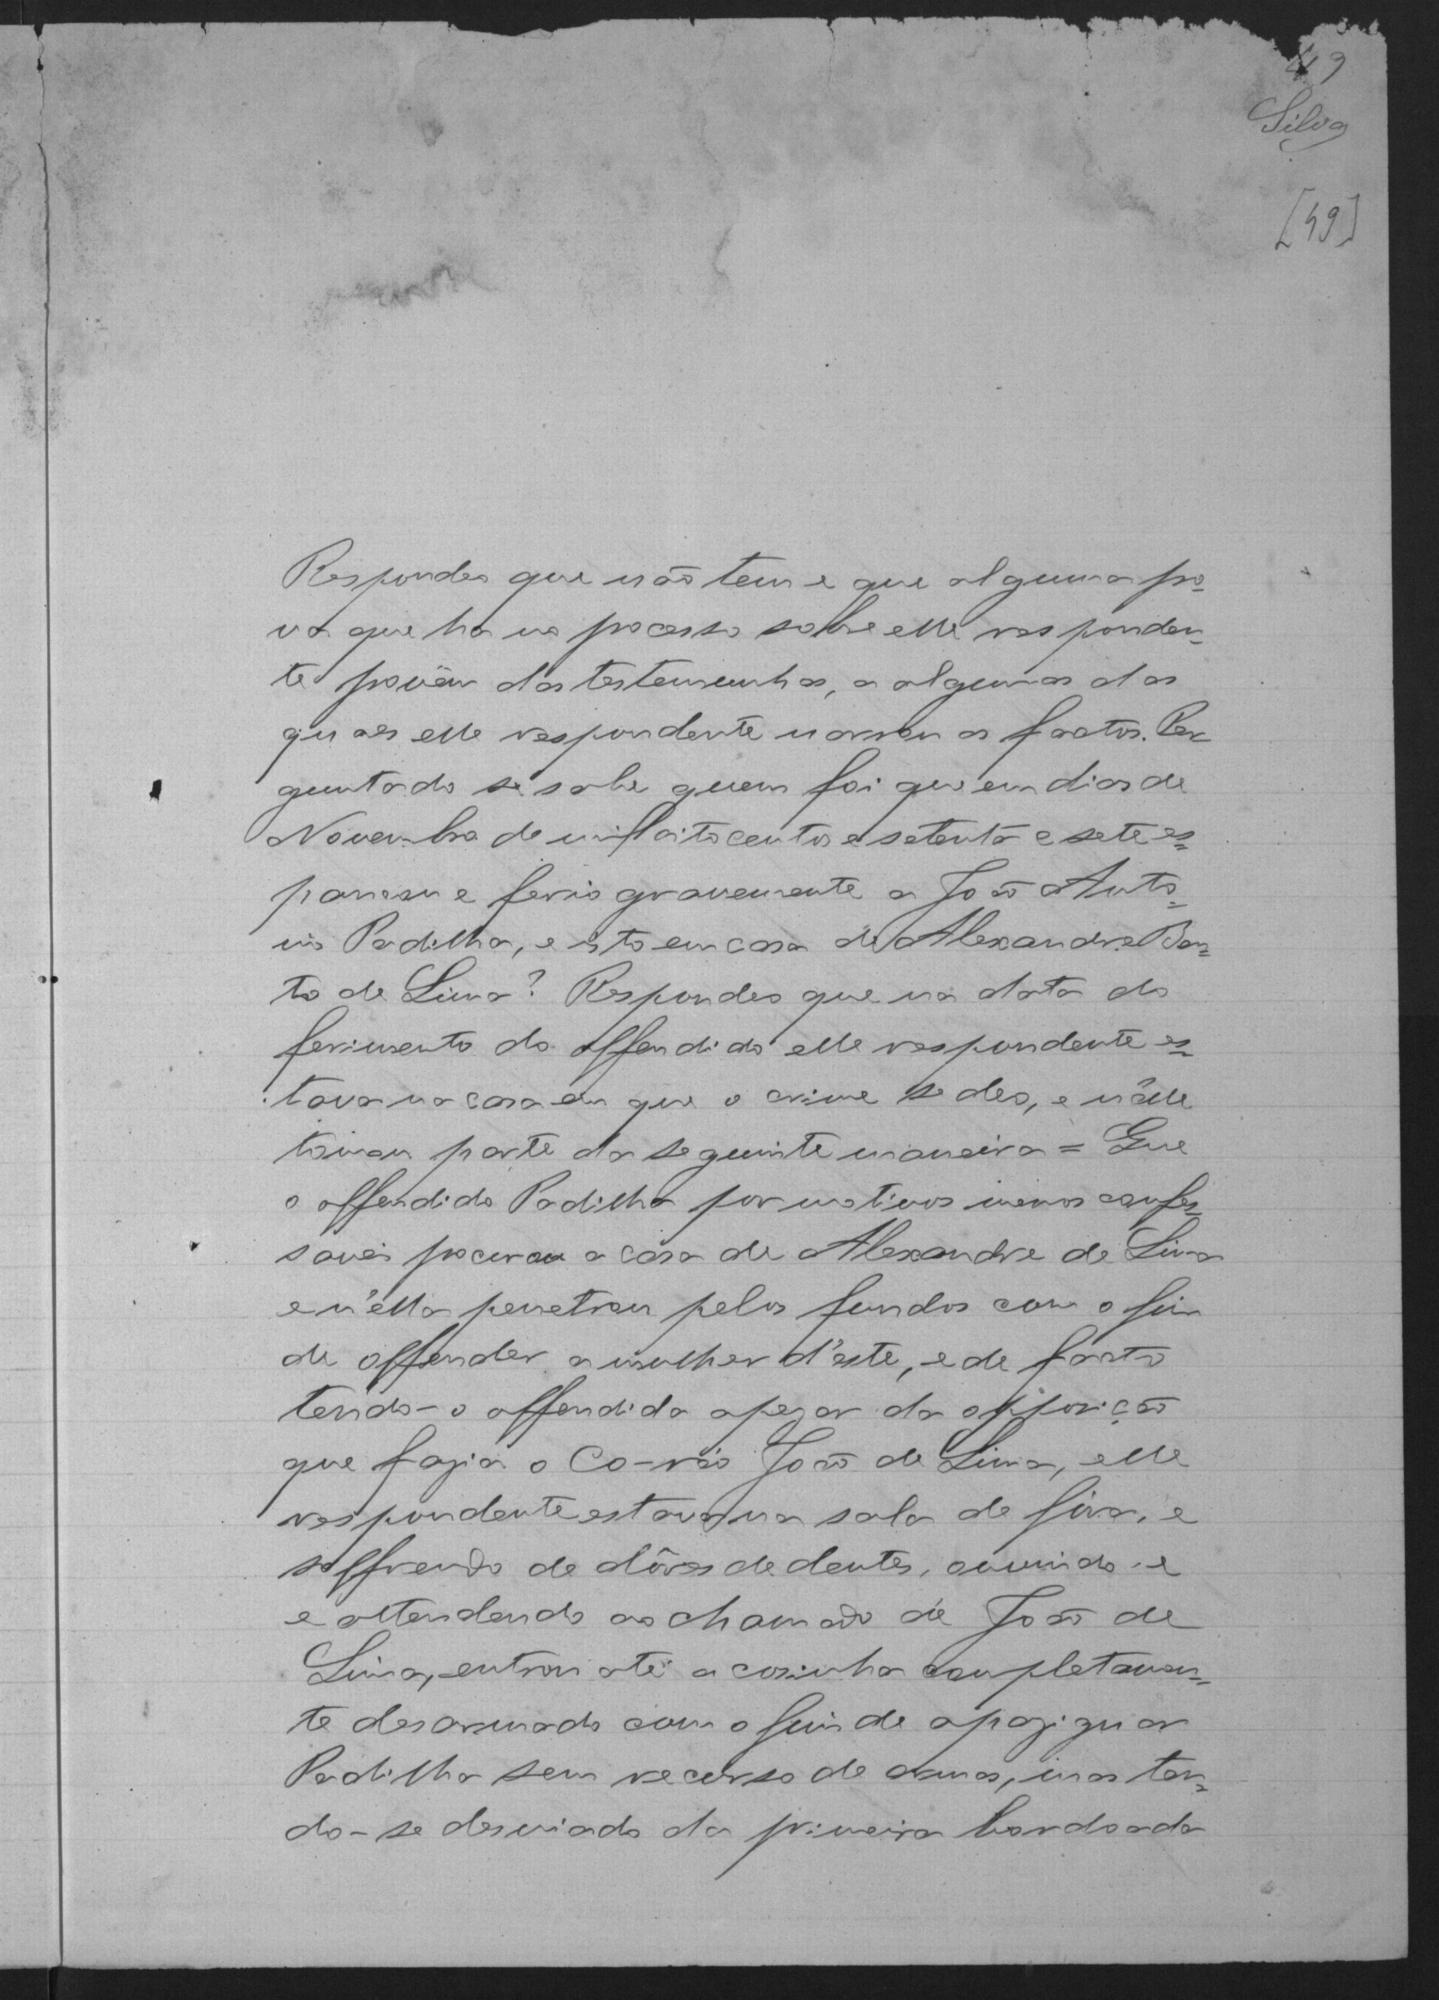 49
Silva
[49]
Respondeo que não tem e que alguma pro-
va que ha no processo sobre elle responden-
te provêm das testemunhas, a algumas das
quaes elle respondente narrou os factos. Per-
guntado se sabe quem foi que em dias de
Novembro de mil oitocentos e setenta e sete es-
pancou e ferio gravemente a João Anto-
nio Padilha, e isto em casa de Alexandre Ben-
to de Lima? Respondeo que na data do
ferimento do offendido elle respondente es-
tava na casa em que o crime se deo, e n'elle
tomou parte da seguinte maneira = Que
o offendido Padilha por motivos menos confes-
saveis procurou a casa de Alexandre de Lima
e n'ella penetrou pelos fundos com o fim
de offender a mulher d'este, e de facto
tendo-o offendido apezar da opposição
que fazia o Co-réo João de Lima, elle
respondente estava na sala de fóra, e
soffrendo de dôres de dentes, ouvindo e
e attendendo ao chamado de João de
Lima, entrou até a cosinha completamen-
te desarmado com o fim de apaziguar
Padilha sem recurso de armas, mas ten-
do-se desviado da primeira bordoada